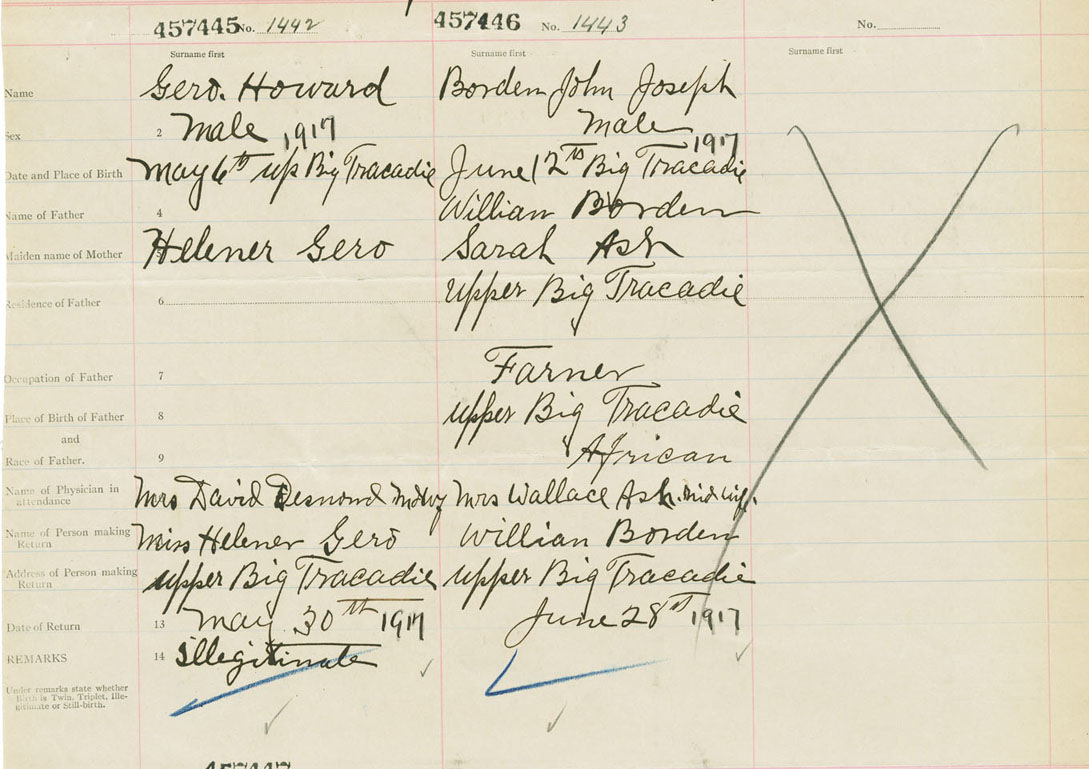 457445 No. 1442 457446 No. 1443 No.
Surname first Surname first Surname first
Name Gero. Howard Borden John Joseph
Sex 2 Male 1917 Male 1917
Date and Place of Birth May 6th up Big Tracadie June 12th Big Tracadie
Name of Father 4 Willian Borden
Maiden name of Mother Helener Gero Sarah Ash
Residence of Father 6 Upper Big Tracadie
Occupation of Father 7 Farner
Place of Birth of Father 8 upper Big Tracadie
and
Race of Father. 9 African
Name of Physician in Mrs David Desmond Mrs Wallace Ash. Midwif.
attendance
Name of Person making Miss Helener Gero Willian Borden
Return
Address of Person making upper Big Tracadie upper Big Tracadie
Return
Date of Return 13 May 30th 1917 June 28st 1917
REMARKS 14 illegitinate
Under remarks state whether
Birth is Twin, Triplet, Ille-
gitimate or Still-birth.